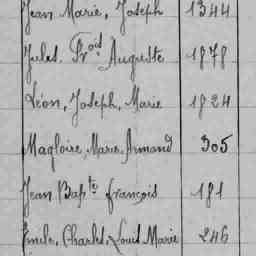 Jean Marie, Joseph 1344
Jules, Fçois Auguste 1878
Léon, Joseph, Marie 1824
Magloire, Marie, Armand 305
Jean Bapte François 181
Emile, Charles, Louis Marie 246